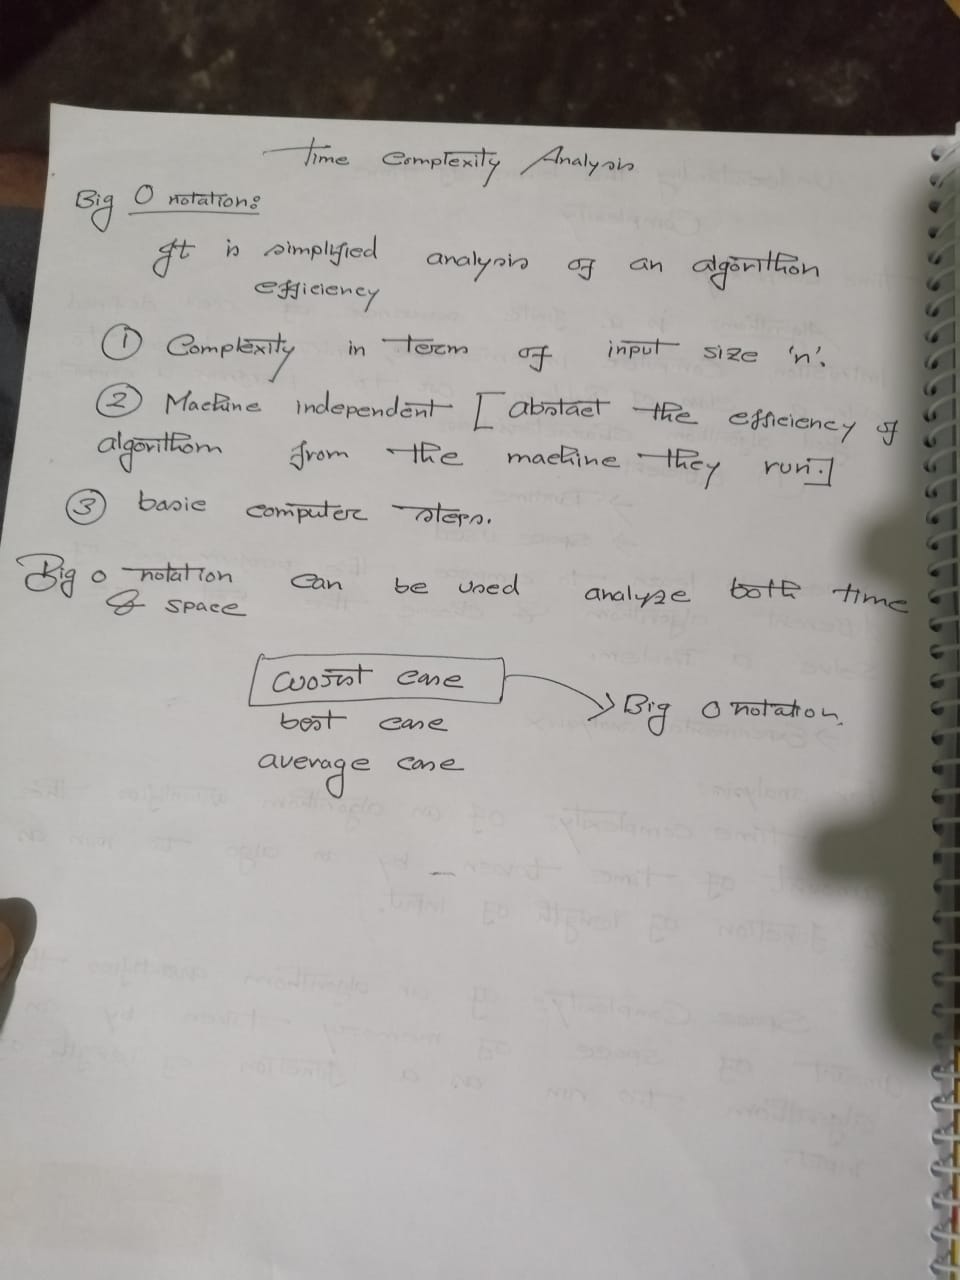 Time Complexity Analysis
Big O notation:
It is simplified analysis of an algorithon
efficiency
① Complexity in term of input size 'n'.
② Machine independent [abstact the efficiency of
algorithom from the machine they run.]
③ basic computer steps.
Big o notation can be used analyze both time
& space
worst case → Big O notation.
best case
average case